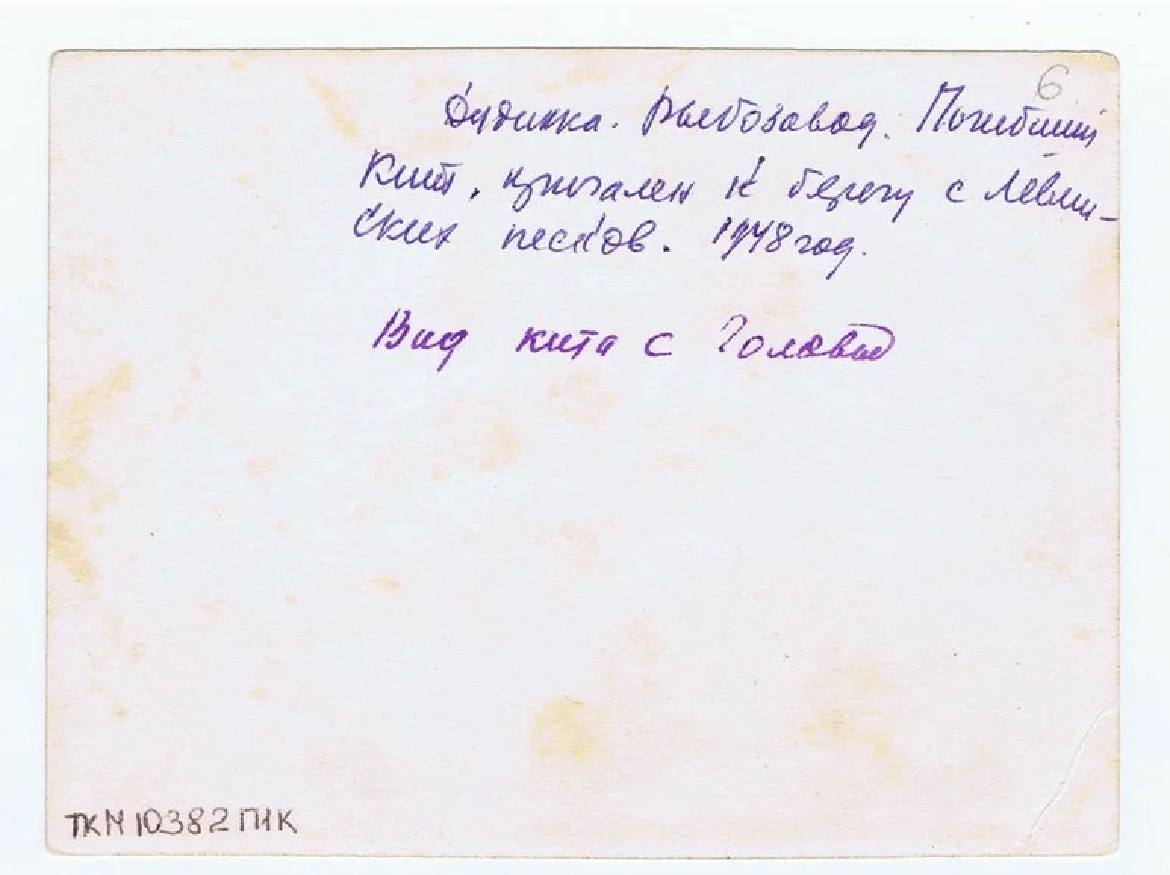 6
Дудинка. Рыбозавод. Погибший
Кит, причален к берегу с Лёвин-
ских песков. 1948 год.
Вид кита с Головы
ТКМ 10382 П1К